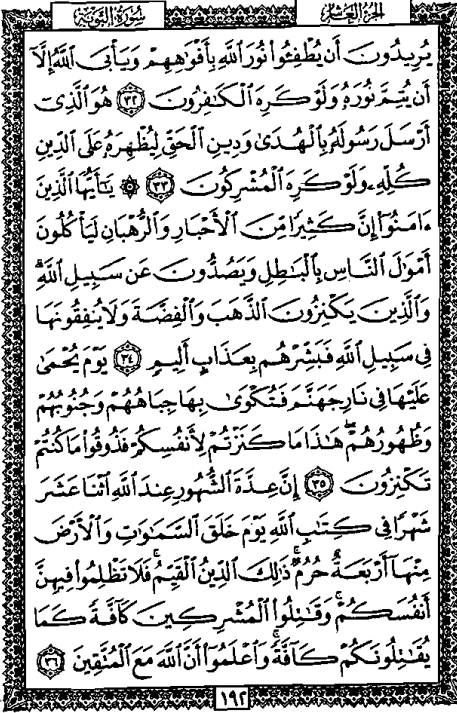 سُورَةُ التَّوْبَةِ الجزء العاشر
يُرِيدُونَ أَن يُطْفِـُٔوا۟ نُورَ ٱللَّهِ بِأَفْوَٰهِهِمْ وَيَأْبَى ٱللَّهُ إِلَّآ
أَن يُتِمَّ نُورَهُۥ وَلَوْ كَرِهَ ٱلْكَٰفِرُونَ ٣٢ هُوَ ٱلَّذِىٓ
أَرْسَلَ رَسُولَهُۥ بِٱلْهُدَىٰ وَدِينِ ٱلْحَقِّ لِيُظْهِرَهُۥ عَلَى ٱلدِّينِ
كُلِّهِۦ وَلَوْ كَرِهَ ٱلْمُشْرِكُونَ ٣٣ ۞ يَٰٓأَيُّهَا ٱلَّذِينَ
ءَامَنُوٓا۟ إِنَّ كَثِيرًا مِّنَ ٱلْأَحْبَارِ وَٱلرُّهْبَانِ لَيَأْكُلُونَ
أَمْوَٰلَ ٱلنَّاسِ بِٱلْبَٰطِلِ وَيَصُدُّونَ عَن سَبِيلِ ٱللَّهِ ۗ
وَٱلَّذِينَ يَكْنِزُونَ ٱلذَّهَبَ وَٱلْفِضَّةَ وَلَا يُنفِقُونَهَا
فِى سَبِيلِ ٱللَّهِ فَبَشِّرْهُم بِعَذَابٍ أَلِيمٍ ٣٤ يَوْمَ يُحْمَىٰ
عَلَيْهَا فِى نَارِ جَهَنَّمَ فَتُكْوَىٰ بِهَا جِبَاهُهُمْ وَجُنُوبُهُمْ
وَظُهُورُهُمْ ۖ هَٰذَا مَا كَنَزْتُمْ لِأَنفُسِكُمْ فَذُوقُوا۟ مَا كُنتُمْ
تَكْنِزُونَ ٣٥ إِنَّ عِدَّةَ ٱلشُّهُورِ عِندَ ٱللَّهِ ٱثْنَا عَشَرَ
شَهْرًا فِى كِتَٰبِ ٱللَّهِ يَوْمَ خَلَقَ ٱلسَّمَٰوَٰتِ وَٱلْأَرْضَ
مِنْهَآ أَرْبَعَةٌ حُرُمٌ ۚ ذَٰلِكَ ٱلدِّينُ ٱلْقَيِّمُ ۚ فَلَا تَظْلِمُوا۟ فِيهِنَّ
أَنفُسَكُمْ ۚ وَقَٰتِلُوا۟ ٱلْمُشْرِكِينَ كَآفَّةً كَمَا
يُقَٰتِلُونَكُمْ كَآفَّةً ۚ وَٱعْلَمُوٓا۟ أَنَّ ٱللَّهَ مَعَ ٱلْمُتَّقِينَ ٣٦
١٩٢